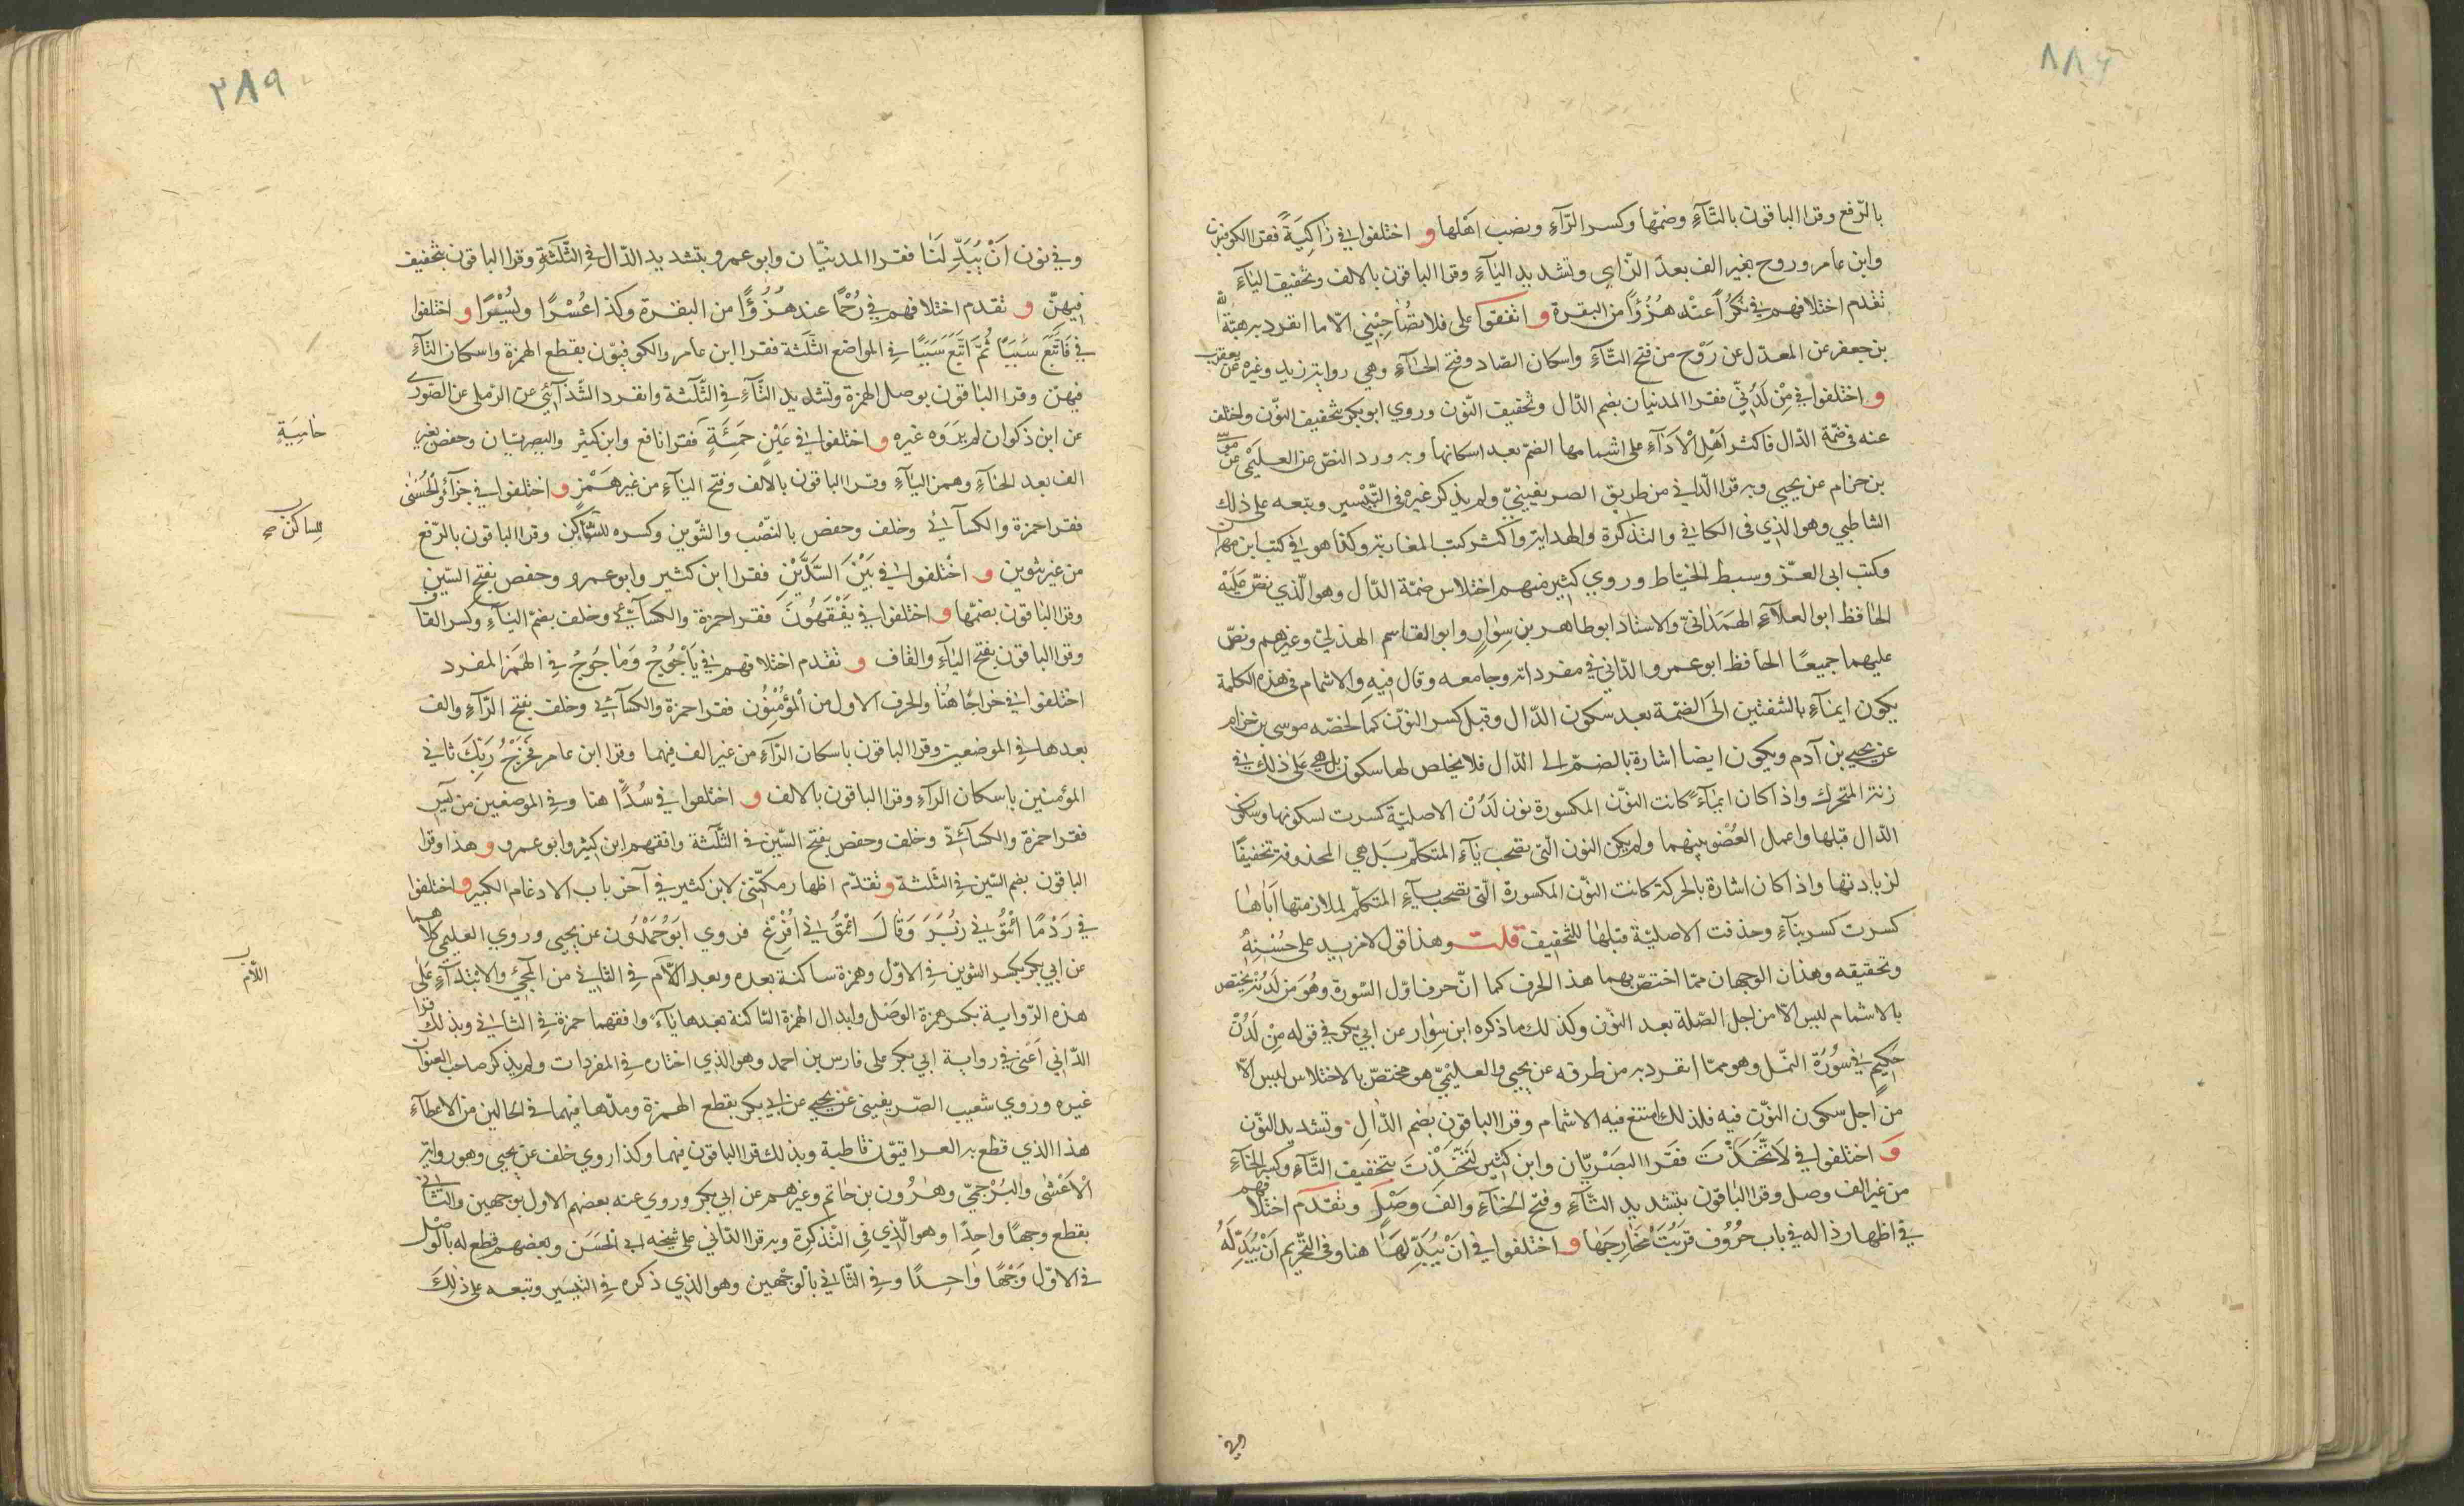 ٨٨٦
بالرّفع وقرا الباقون بالتّآءِ وضمّها وكسر الرّآءِ ونصب اَهْلها و اختلفوا في زَاكِيَةً فقرا الكوفيّون
وابن عامر وروح بغير الف بعدَ الزّاي وتشديد اليٰآءِ وقرا الباقون بالالف وتخفيف اليٰآءِ
تقدم اختلافهم في نُكرًا عند هُزُؤًا من البقرة و اتفقوا على فلا تصٰاحِبْني الّا ما انفرد به هبة الله
بن جعفر عن المعدّل عن رَوْح من فتح التّآءِ واسكان الصّاد وفتح الحٰآءِ وهي رواية زيد وغيره عن يعقوب
و اختلفوا في مِنْ لَدُنّي فقرا المدنيان بضم الدّال وتخفيف النّون وروي ابو بكر بتخفيف النوّن واختلف
عنه في ضمّة الدّال فاكثر اَهْلِ اْلاَدآءِ على اشمامها الضمّ بعد اسكانها وبه ورد النصّ عن العليْمي عن موسى
بن حزام عن يحيي وبه قرا الدّاني من طريق الصريفينيّ ولم يذكر غيره في التّيْسير وتبعه على ذلك
الشاطبي وهو الذي في الكافي والتذكرة والهداية واكثر كتب المغاربة وكذا هو في كتب ابن مهران
وكتب ابي العزّ وسبط الخيّاط وروي كثير منهم اختلاس ضمّة الدّال وهو الّذي نصّ عَلَيْه
الحٰافظ ابو العلآءِ الهَمَدٰانيّ والاستاذ ابو طاهر بن سِوٰارٍ وابو القاسم الهذليّ وغيرهم ونصّ
عليهما جميعًا الحافظ ابو عمرو الدّاني في مفرداته وجامعه وقال فيه والاشمام في هذه الكلمة
يكون ايمٰآءً بالشفتين الَى الضمّة بعد سكون الدّال وقبل كسر النوّن كما لخصّه موسى بن حزام
عن يحيي بن آدم ويكون ايضا اشارة بالضمّ الى الدّال فلا يخلص لها سكون بل هي على ذلك في
زنة المتحرك واذا كان ايمٰآءً كانت النوّن المكسورة نون لَدُنْ الاصليّة كسرت لسكونها وسكون
الدّال قبلها واعمال العُضْو بينهما ولم يكن النون الّتي تصحب يٰآءِ المتكلّم بَل هي المحذوفة تخفيفًا
لزيادتها واذا كان اشارة بالحركة كانت النوّن المكسورة الّتي تصحب يٰآءِ المتكلّم لملازمتها اَيّاهٰا
كسرت كسر بنآءٍ وحذفت الاصليّة قبلهٰا للتخفيف قلت وهذا قول لا مزيد على حُسْنِهِ
وتحقيقه وهذان الوجهان ممّا اختصّ بهما هذا الحرف كما انّ حرف اوّل السّورة وهُوَ مِن لَدُنْهُ يختص
بالاشمام ليس الّا من اجل الصّلة بعد النوّن وكذلك ما ذكره ابن سِوٰار عن ابي بكر في قوله مِنْ لَدُنْ
حَكِيمٍ في سُورَة النمّل وهو ممّا انفرد به من طرقه عن يحيي والعليْميّ هو مختصّ بالاختلاس ليس الّا
من اجل سكون النوّن فيه فلذلك امتنع فيه الاشمام وقرا الباقون بضم الدّالِ وتشديد النوّن
و اختلفوا في لاَتَّخَذْتَ فقَرا البصْريّان وابن كثير لَتَخِذْتَ بتخفيف التّآءِ وكسر الخٰآءِ
من غير الف وصل وقرا البٰاقون بتشديد التّآءِ وفتح الخٰآءِ والف وصْلٍ وتقدّم اختلافهم
في اظهار ذاله في باب حرُوُف قرُبَتْ مَخٰارِجهٰا و اختلفوا في اَنْ يُبْدِلَهُمٰا هنا وفي التّحريم اَنْ يُبْدِلَهُ
وفي
٢٨٩
وفي نون اَنْ يُبْدِلَنَا فقرا المدنيّان وابو عمرو بتشديد الدّال في الثّلَثةِ وقرا الباقون بتخفيف
فيهنّ و تقدم اختلافهم في رُحْمًا عند هُزُؤًا من البقرة وكذا عُسْرًا ويُسْرًا و اختلفوا
في فَاَتْبَعَ سَبَبًا ثُمَّ اَتْبَعَ سَبَبًا في المواضع الثّلَثة فقرا ابن عامر والكوفيوّن بقطع الهمزة واسكان التّآءِ
فيهنّ وقرا البٰاقون بوصل الهمزة وتشديد التّآءِ في الثّلٰثة وانفرد الشّذآئي عن الرّملي عن الصّوري
عن ابن ذكوان لم يَرَوه غيره و اختلفوا في عَيْنٍ حَمِئَةٍ فقرا نافع وابن كثير والبصريّان وحفص بغير
حٰامِيَةٍ
الف بعد الحٰآءِ وهمز اليٰآءِ وقرا الباقون بالالف وفتح اليٰآءِ من غير هَمْزٍ و اختلفوا في جزآءُ الْحُسْنىٰ
فقرا حمزة والكسآئي وخلف وحفص بالنّصْب والتّنوين وكسره للسّاكِنين وقرا الباقون بالرّفع
للساكنين صح
من غير تنوين و اخْتلفوا في بَيْنَ السَّدَّيْنِ فقرا ابن كثير وابو عمرو وحفص بفتح السّين
وقرا البٰاقون بضمّها و اختلفوا في يَفْقَهُونَ فقرا حمزة والكسآئيّ وخلف بضمّ اليٰآءِ وكسر القاف
وقرا الباقون بفتح اليٰآءِ والقاف و تقدم اختلافهم في يَأْجُوجُ وَمٰأجُوجُ في الهَمْز المفرد
اختلفوا في خراجًا هُنٰا والحرف الاول من الْمؤُمِنُون فقرا حمزة والكسآئي وخلف بفتح الرّآءِ والف
بعدها في الموضعين وقرا الباقون باسكان الرّآءِ من غير الف فيهما وقرا ابن عامر فَخَرْجُ رَبِّكَ ثاني
المؤمنين باسكان الرّآءِ وقرا الباقون بالالف و اختلفوا في سُدًّا هنا وفي الموضعين من يٰس
فقرا حمزة والكسآئيّ وخلف وحفص بفتح السّين في الثّلٰثة وافقهم ابن كثير وابو عمرو و هذا وقرا
الباقون بضم السّين في الثّلٰثة و تقدّم اظهار مكّنّني لابن كثير في آخر باب الادغام الكبير و اختلفوا
في رَدْمًا ائْتُوني زُبَرَ وَقٰالَ ائْتُوني اُفْرِغْ فروي ابَوُ حَمْدُون عن يحيي وروي العليمي كلاهما
عن ابي بكر بكسر التنوين في الاوّل وهمزة ساكنة بعده وبعد الّلاَم في الثّاني من المجيْءِ والابتدآءِ عَلَى
اللّام
هذه الرّواية بكسر همزة الوصْل وابدال الهمزة السّاكنة بعدها يٰآءً وافقهما حمزة في الثاني وبذلك قرا
الدّاني اَعْني في رواية ابي بكر على فارس بن احمد وهو الذي اختاره في المفردات ولم يذكر صاحب العنوان
غيره وروي شعيب الصّريفيني عن يحيي عن ابي بكر بقطع الهمزة ومدّها فيهما في الحالين من الاعطٰآءِ
هذا الذي قطع به العراقيّون قاطبة وبذلك قرا الباقون فيهما وكذا روي خلف عن يحيي وهو رواية
اْلاَعْشٰى والبُرْجميّ وهٰرُون بن حٰاتم وغيرهم عن ابي بكر وروي عنه بعضهم الاول بوجهين والثاني
بقطع وجهًا واحِدًا وهو الّذي في التّذكرة وبه قرا الدّاني على شيخه ابي الْحَسَن وبعضهم قطع له بالْوصْل
في الاوّل وَجْهًا وٰاحِدًا وفي الثّاني باْلوجْهين وهو الذي ذكره في التيسير وتبعه على ذٰلِكَ